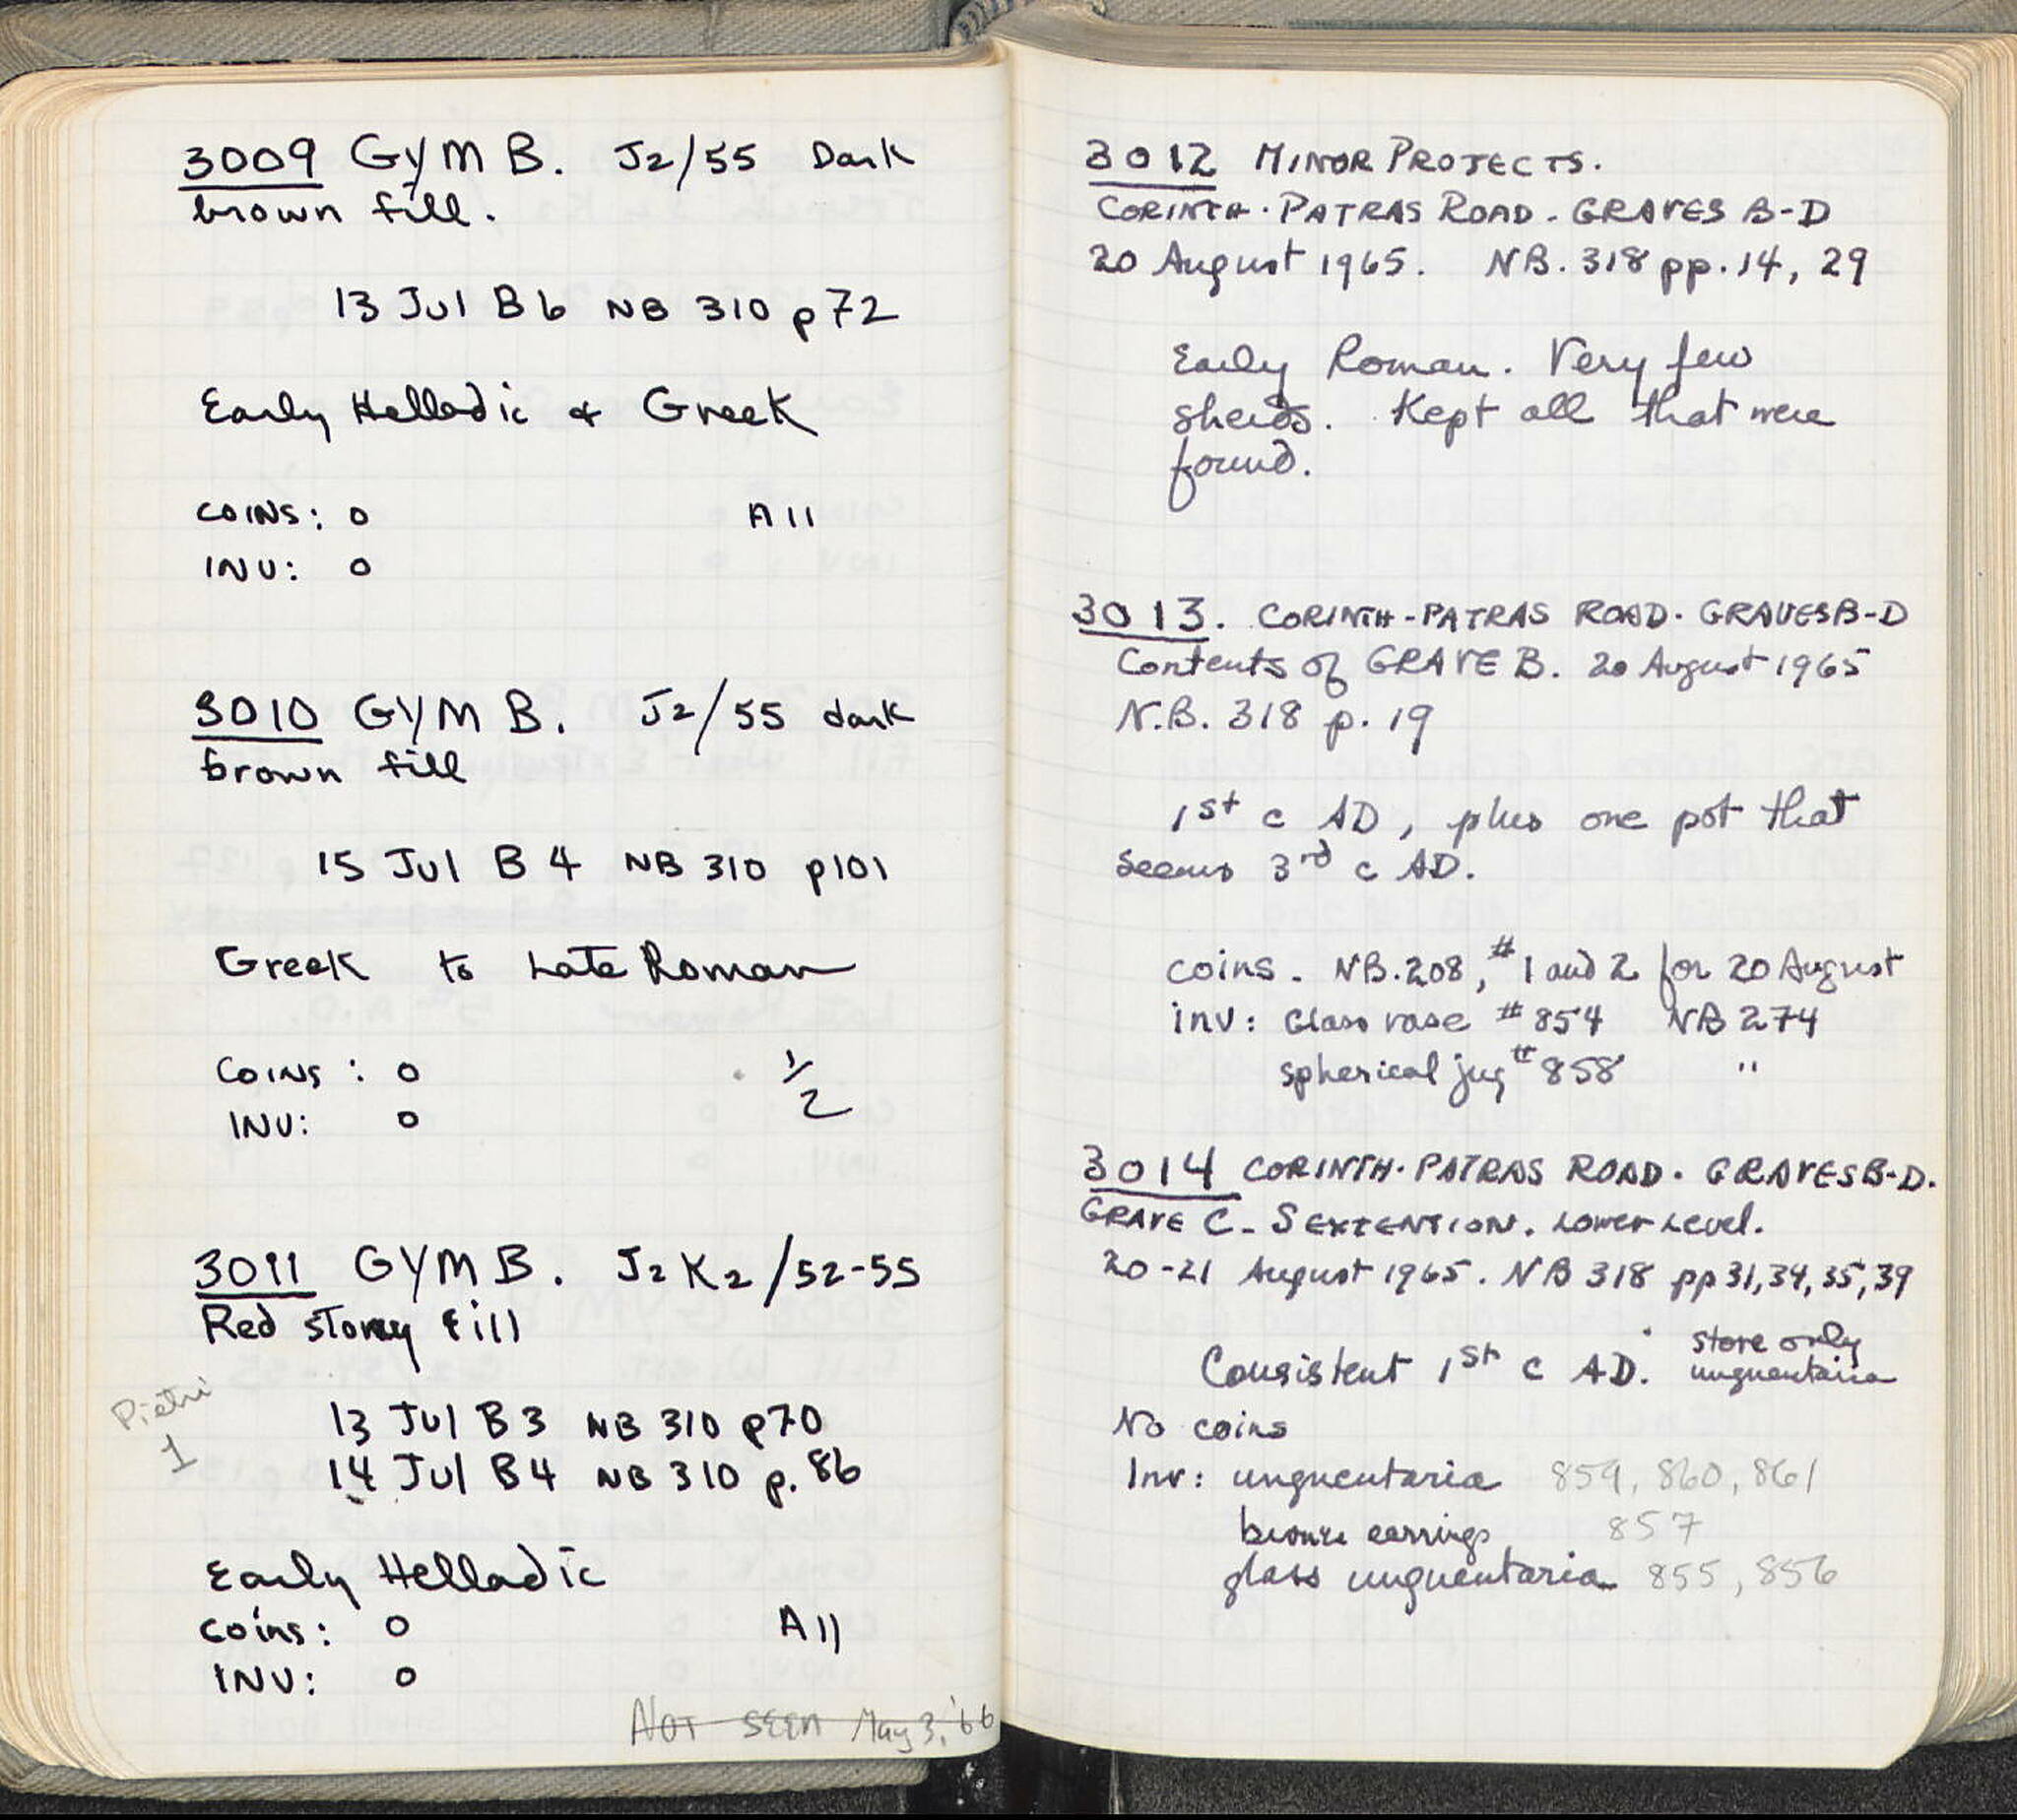 3009 GYM B. J2/55 Dark
brown fill.
13 Jul B6 NB 310 p72
Early Helladic + Greek
COINS: 0 All
INV: 0
3010 GYM B. J2/55 dark
brown fill
15 Jul B 4 NB 310 p101
Greek to Late Roman
COINS: 0 1/2
INV: 0
3011 GYM B. J2 K2/52-55
Red stoney fill
Pietri
1
13 Jul B3 NB 310 p70
14 Jul B4 NB 310 p. 86
Early Helladic
Coins: 0 All
INV: 0
NOT SEEN May 3, '66
3012 MINOR PROJECTS.
CORINTH-PATRAS ROAD. GRAVES B-D
20 August 1965. NB. 318 pp. 14, 29
Early Roman. Very few
sherds. Kept all that were
found.
3013. CORINTH-PATRAS ROAD. GRAVES B-D
Contents of GRAVE B. 20 August 1965
N.B. 318 p. 19
1st c AD, plus one pot that
seems 3rd c AD.
coins. NB. 208, #1 and 2 for 20 August
inv: Glass vase #854 NB 274
spherical jug #858 "
3014 CORINTH-PATRAS ROAD. GRAVES B-D.
GRAVE C - S EXTENTION. Lower Level.
20-21 August 1965. NB 318 pp 31,34,35,39
Consistent 1st c AD. store only
unguentaria
No coins
Inv: unguentaria 859, 860, 861
bronze earrings 857
glass unguentaria 855, 856